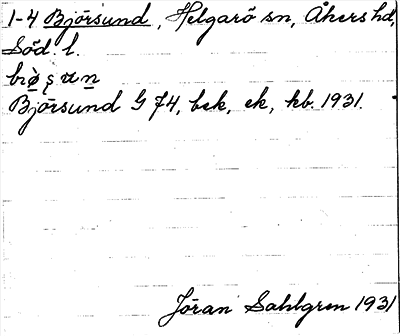 1-4 Björsund, Helgarö sn, Åkers hd,
Söd. l.
Björsund G J4, bek, ek, kb. 1931.
Jöran Sahlgren 1931